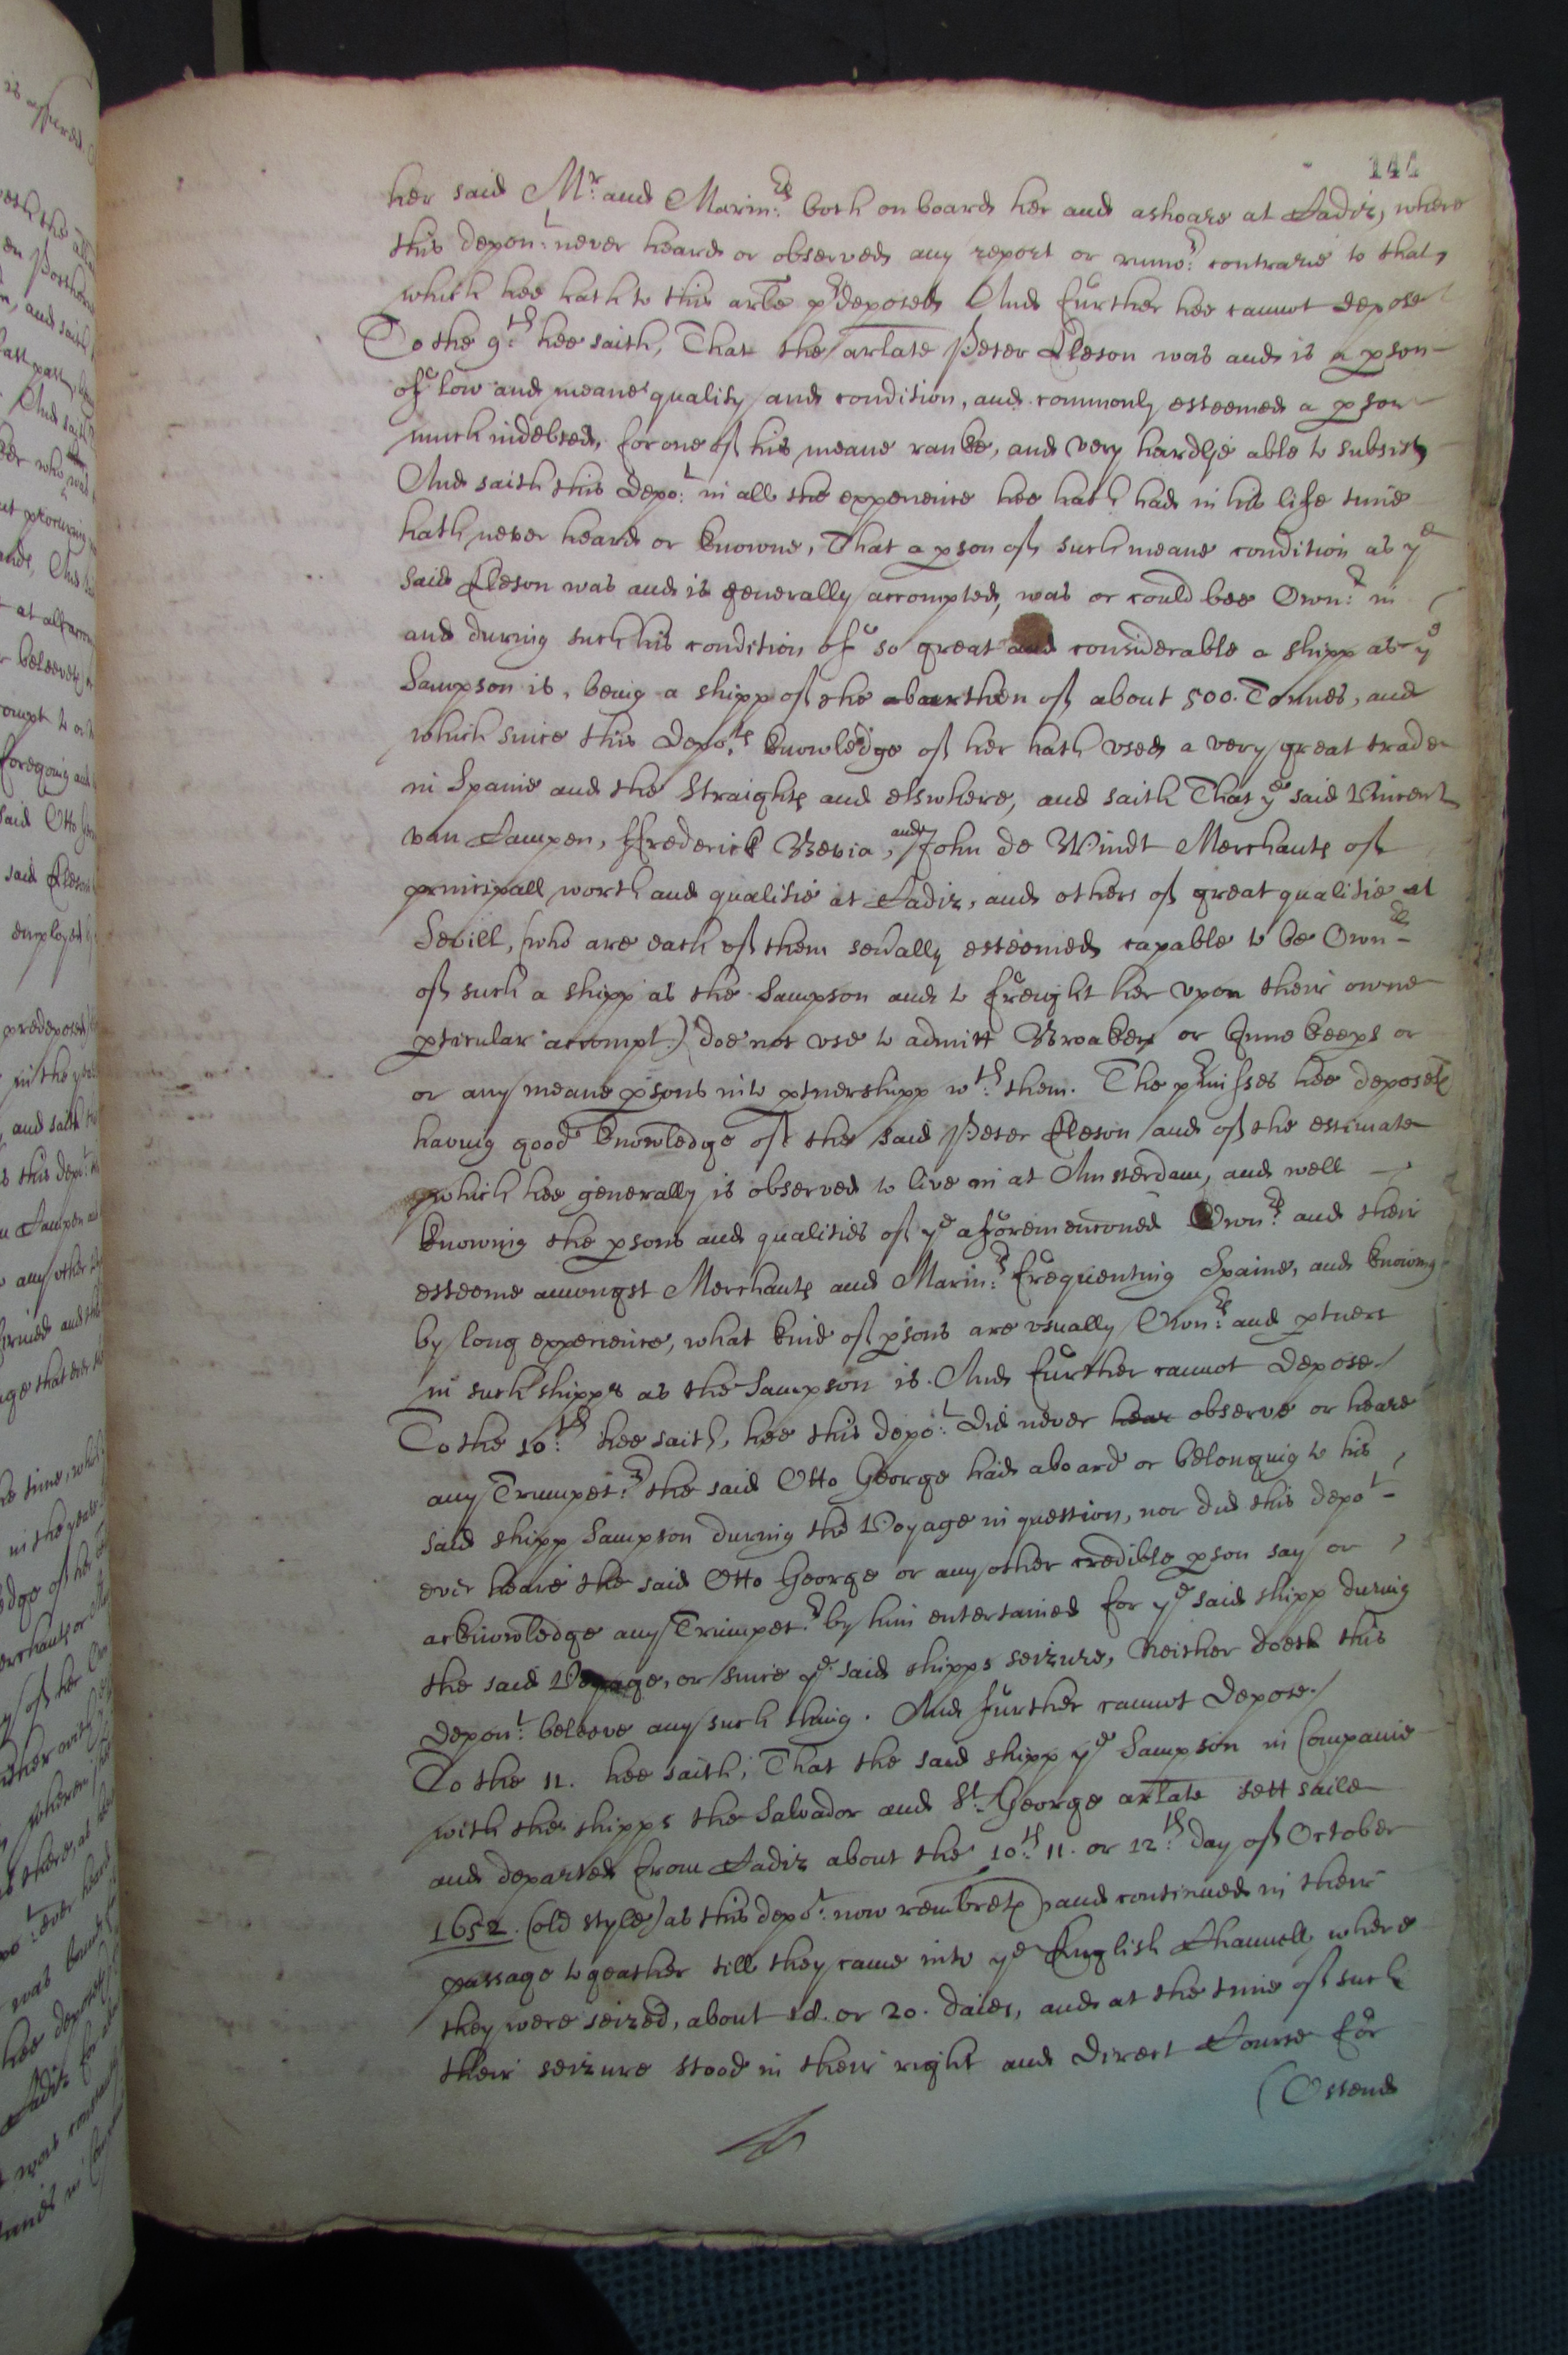 144
her said Mr. and Marin:rs both on board her and ashoare at Cadiz, where
this depon:t never heard or observed any report or rumo:r contrarie to that,
which hee hath to this arle pr deposed And further hee cannot depose
To the 9:th hee saith, That the arlate Peter Cleson was and is a pson
of low and meane quality and condition, and commonly esteemed a pson
much indebted, for one of his meane ranke, and very hardlie able to subsist,
And saith this depo:t in all the experience hee hath had in his life time
hath never heard or knowne, That a pson of such meane condition as ye
said Cleson was and is generally accompted, was or could bee Own:r in
and during such his condition of so great and considerable a shipp as ye
Sampson is, being a shipp of the burthen of about 500. Tonnes, and
which since this depo:ts knowledge of her hath vsed a very great trade
in Spaine and the Straights and elswhere, and saith That ye said Vincent
van Campen, ffrederick Bevia, and John de Windt Merchants of
principall worth and qualitie at Cadiz, and others of great qualitie at
Sevill, (who are each of them seually esteemed capable to be Own:rs
of such a shipp as the Sampson and to freight her vpon their owne
pticular accompt.) doe not vse to admitt Broakers or Inne keeps or
or any meane psons into ptnershipp w:th them. The pr misses hee deposeth
having good knowledge of the said Peter Cleson and of the estimate
which hee generally is observed to live in at Amsterdam, and well
knowing the psons and qualities of ye aforemenconed Own:rs and their
esteeme amongst Merchants and Marin:rs frequenting Spaine, and knowing
by long experience, what kind of psons are vsually Own:rs and ptners
in such shipps as the Sampson is. And further cannot depose./
To the 10:th hee saith, hee this depo:t did never hear observe or heare
any Trumpet:r the said Otto George had aboard or belonging to his
said shipp Sampson during the Voyage in question, nor did this depo:t
ever heare the said Otto George or any other credible pson say or
acknowledge any Trumpet:r by him entertained for ye said shipp during
the said Voyage, or since ye said shipps seizure, Neither doeth this
depon:t beleeve any such thing. And further cannot depose./
To the 11. hee saith, That the said shipp ye Sampson in Companie
with the shipps the Salvador and St. George arlate sett saile
and departed from Cadiz about the 10:th 11. or 12:th day of October
1652. (old style) as this depo:t now rembreth) and continued in their
passage togeather till they came into ye English Channell, where
they were seized, about 18. or 20. daies, and at the time of such
their seizure stood in their right and direct Course for
(Ostend